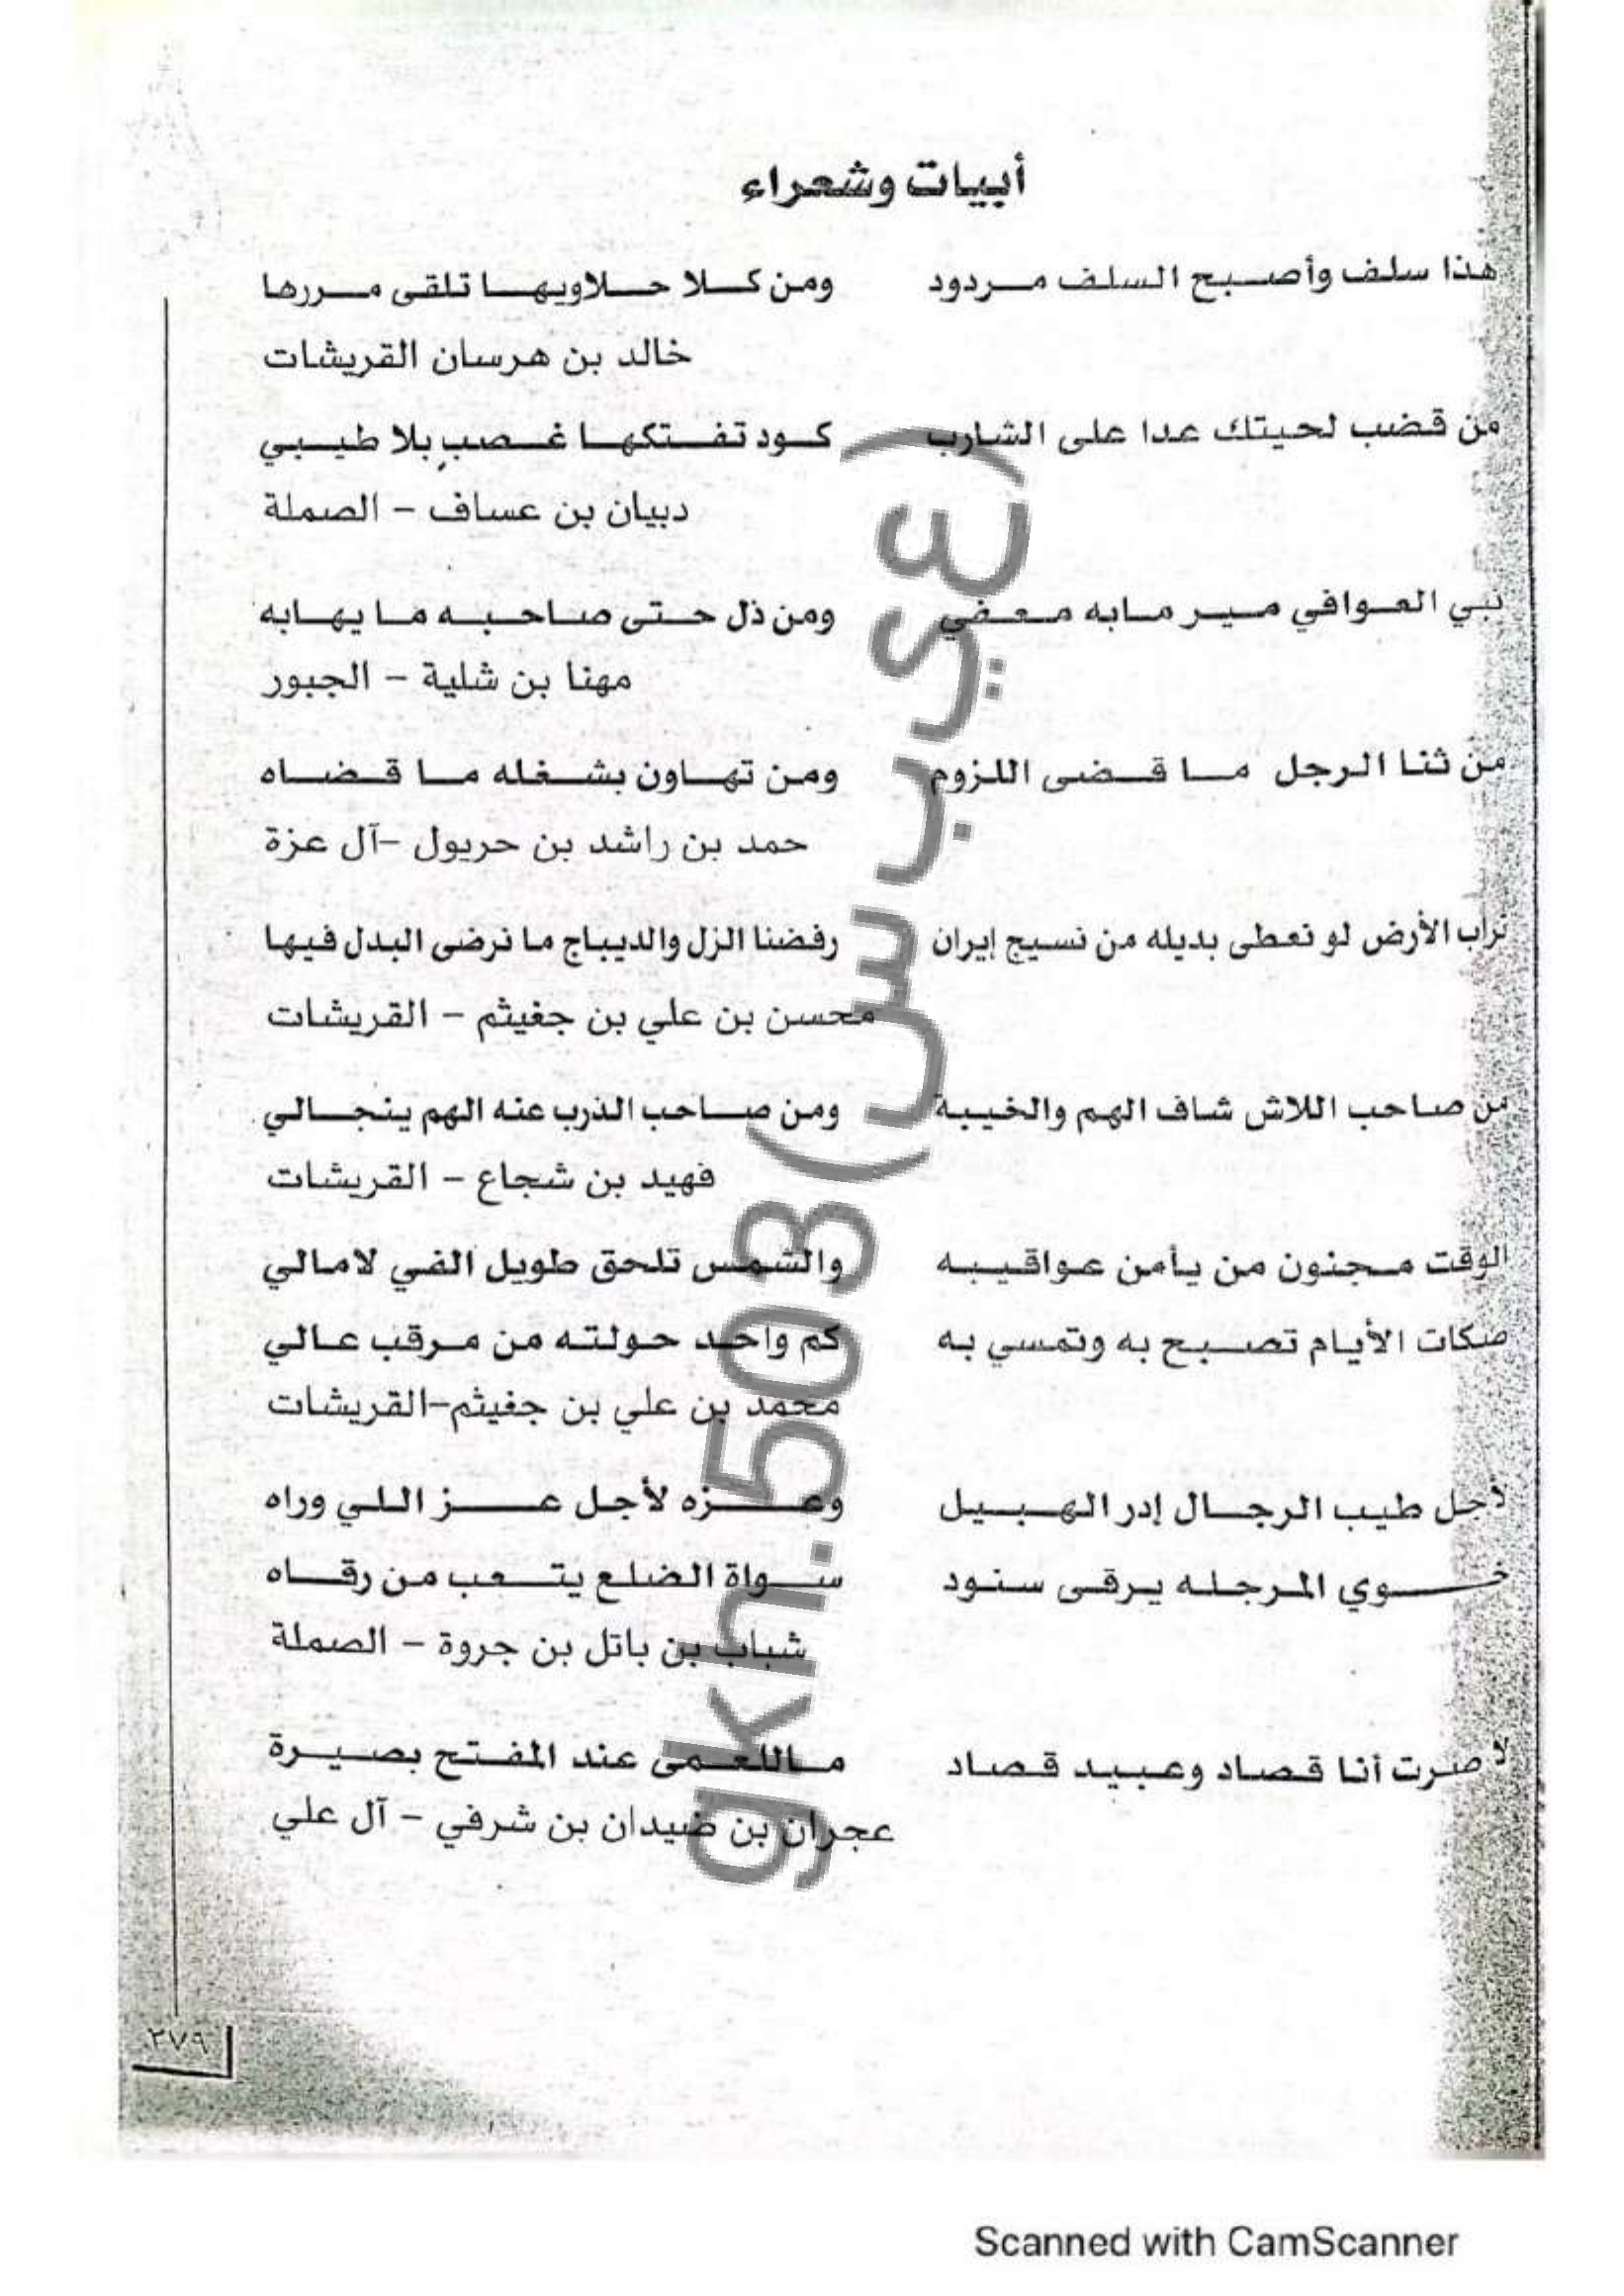 أبيات وشعراء
هذا سلف وأصبح السلف مردود ومن كلا حلاويها تلقى مررها
خالد بن هرسان القريشات
من قضب لحيتك عدا على الشارب كود تفتكها غصب بلا طيبي
دبيان بن عساف – الصملة
نبي العوافي مير مابه معفي ومن ذل حتى صاحبه ما يهابه
مهنا بن شلية – الجبور
من ثنا الرجل ما قضى اللزوم ومن تهاون بشغله ما قضاه
حمد بن راشد بن حريول –آل عزة
تراب الأرض لو نعطى بديله من نسيج إيران رفضنا الزل والديباج ما نرضى البدل فيها
محسن بن علي بن جغيثم – القريشات
من صاحب اللاش شاف الهم والخيبة ومن صاحب الذرب عنه الهم ينجالي
فهيد بن شجاع – القريشات
الوقت مجنون من يأمن عواقيبه والشمس تلحق طويل الفي لامالي
صكات الأيام تصبح به وتمسي به كم واحد حولته من مرقب عالي
محمد بن علي بن جغيثم–القريشات
لأجل طيب الرجال إدر الهبيل وعزه لأجل عز اللي وراه
خوي المرجله يرقى سنود سواة الضلع يتعب من رقاه
شباب بن باتل بن جروة – الصملة
لا صرت أنا قصاد وعبيد قصاد ماللعمى عند المفتح بصيرة
عجران بن ضيدان بن شرفي – آل علي
٢٧٩
gkh.503
Scanned with CamScanner